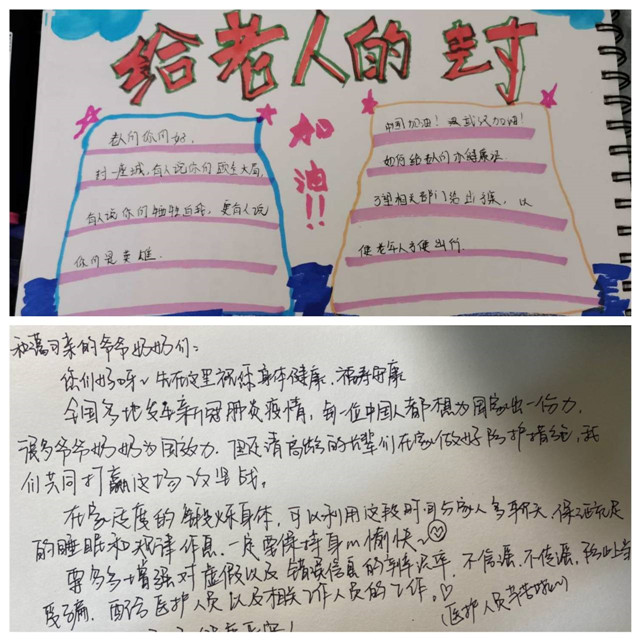 给老人的封
加油!!
老人们你们好,
封一座城,有人说你们顾全大局,
有人说你们牺牲自我,更有人说
你们是英雄.
中国加油!武汉加油!
如何给老人们办健康
相关部门给出了, 以
使老年人方便出行.
和蔼可亲的爷爷奶奶们:
您们好呀~先在这里祝您身体健康、福寿安康
全国各地发生新冠肺炎疫情,每一位中国人都想为国家出一份力.
很多爷爷奶奶为国效力.但还请高龄的长辈们在家做好防护措施,我
们共同打赢这场攻坚战。
在家适度的锻炼身体,可以利用这段时间与家人多聊天,保证充足
的睡眠和规律作息.一定要保持身心愉快~
要多多增强对虚假以及错误信息的辨识率.不信谣、不传谣,防止上当
受骗.配合医护人员以及相关工作人员的工作。♡
(医护人员辛苦啦)